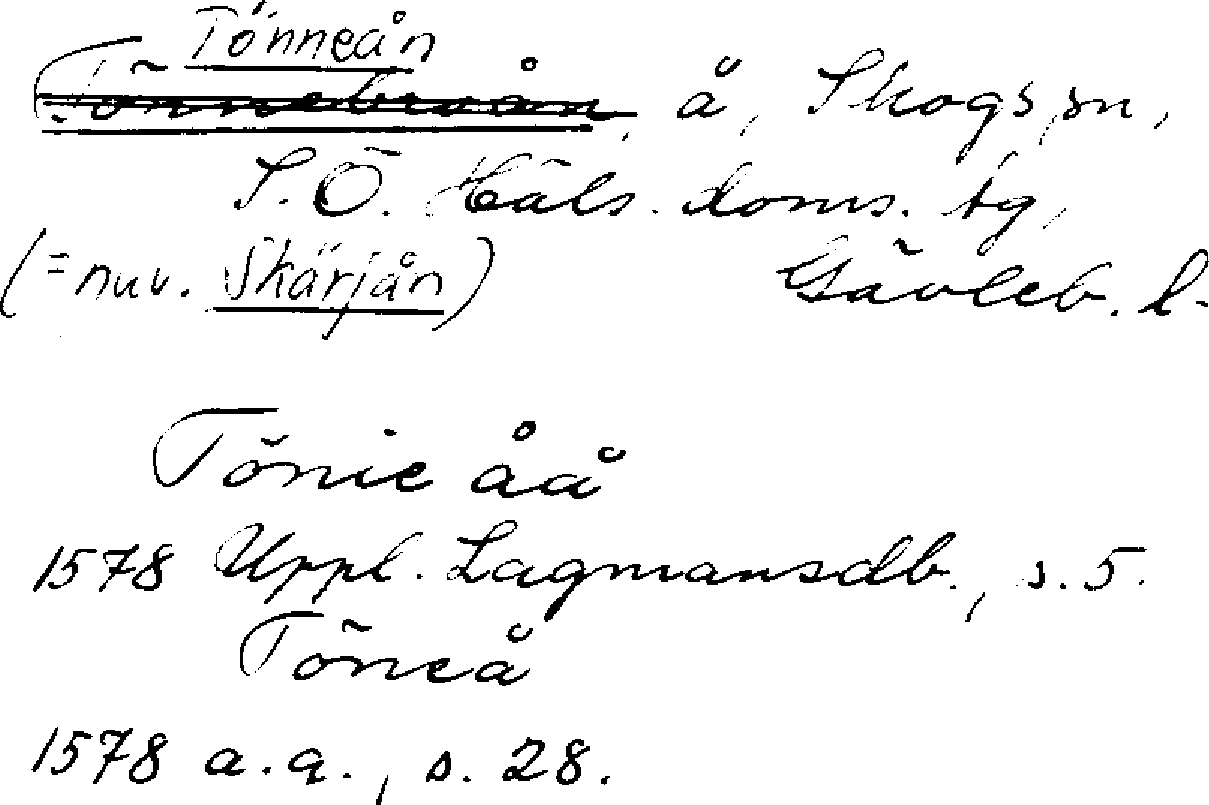 Tönneån
Tönnebroån, å, Skogs sn,
S.Ö. Häls. doms. tg,
(= nuv. Skärjån) Gävleb. l.
Tönie åå
1578 Uppl. Lagmansdb., s. 5.
Töneå
1578 a.a., s. 28.